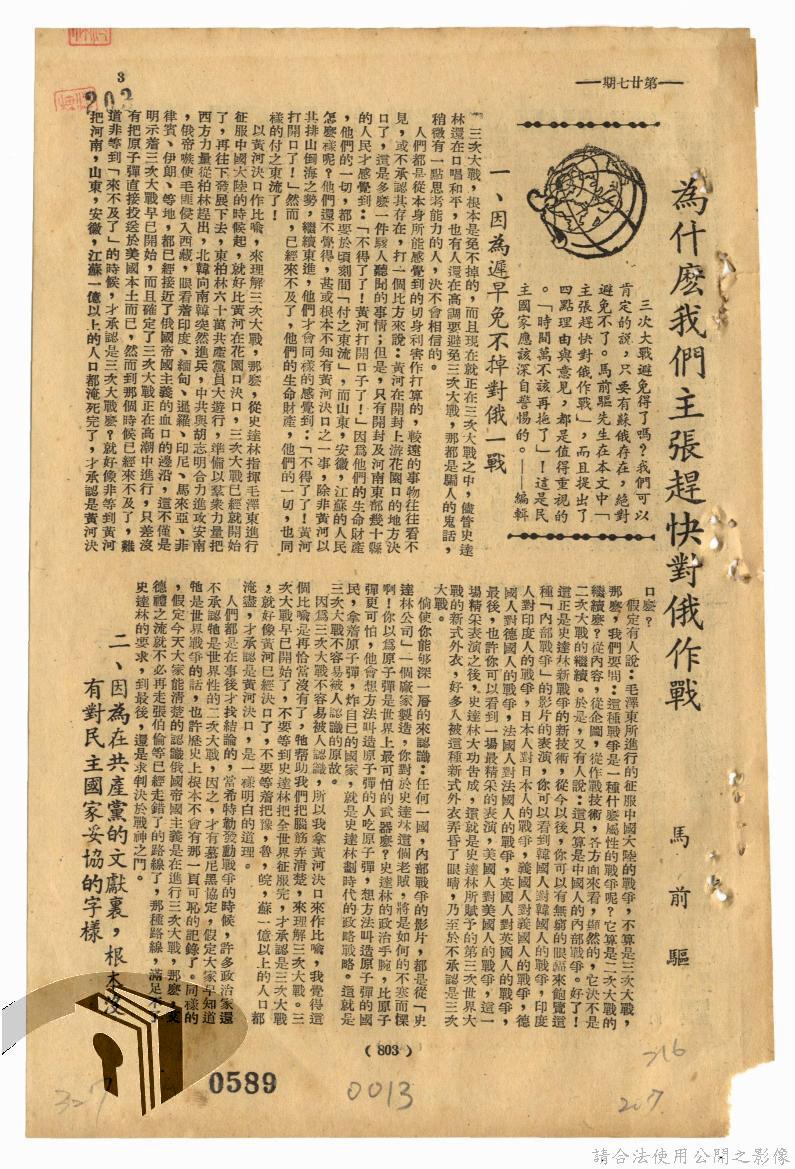 第廿七期
為什麼我們主張趕快對俄作戰
馬前驅
三次大戰避免得了嗎？我們可以
肯定的說，只要有蘇俄存在，絕對
避免不了。馬前驅先生在本文中「
主張趕快對俄作戰」，而且提出了
四點理由與意見，都是值得重視的
。「時間萬不該再拖了」！這是民
主國家應該深自警惕的。——編輯
一、因為遲早免不掉對俄一戰
三次大戰，根本是免不掉的，而且現在就正在三次大戰之中，儘管史達
林還在口唱和平，也有人還在高調要避免三次大戰，那都是騙人的鬼話，
稍微有一點思考能力的人，決不會相信的。
人們都是從本身所能感覺到的切身利害作打算的，較遠的事物往往看不
見，或不承認其存在，打一個比方來說：黃河在開封上游花園口的地方決
口了，這是多麼一件駭人聽聞的事情；但是，只有開封及河南東部幾十縣
的人民才感覺到：「不得了了！黃河打開口子了！」因爲他們的生命財產
，他們的一切，都要於頃刻間「付之東流」，而山東，安徽，江蘇的人民
怎麼樣呢？他們還不覺得，甚或根本不知有黃河決口之一事，除非黃河以
其排山倒海之勢，繼續東進，他們才會同樣的感覺到：「不得了了！黃河
打開口了！」然而，已經來不及了，他們的生命財產，他們的一切，也同
樣的付之東流了！
以黃河決口作比喻，來理解三次大戰，那麽，從史達林指揮毛澤東進行
征服中國大陸的時候起，就好比黃河在花園口決口，三次大戰已經就開始
了，再往下發展下去，東柏林六十萬共產黨員大遊行，準備以羣衆力量把
西方力量從柏林趕出，北韓向南韓突然進兵，中共與胡志明合力進攻安南
，俄帝嗾使毛匪侵入西藏，眼看着印度、緬甸、暹羅、印尼、馬來亞、非
律賓、伊朗、等地，都已經接近了俄國帝國主義的血口的邊沿，這不僅是
明示着三次大戰早已開始，而且確定了三次大戰正在高潮中進行，只差沒
有把原子彈直接投送於美國本土而已，然而到那個時候已經來不及了，難
道非等到「來不及了」的時候，才承認是三次大戰麽？就好像非等到黃河
把河南，山東，安徽，江蘇一億以上的人口都淹死完了，才承認是黃河決
口麼？
假定有人說：毛澤東所進行的征服中國大陸的戰爭，不算是三次大戰，
那麽，我們要問：這種戰爭是一種什麽屬性的戰爭呢？它算是二次大戰的
繼續麽？從內容，從企圖，從作戰技術，各方面來看，顯然的，它決不是
二次大戰的繼續。於是，又有人說：這只算是中國人的內部戰爭。好了！
這正是史達林新戰爭的新技術，從今以後，你可以有無窮的眼福來飽覽這
種「內部戰爭」的影片的表演，你可以看到韓國人對韓國人的戰爭，印度
人對印度人的戰爭，日本人對日本人的戰爭，義國人對義國人的戰爭，德
國人對德國人的戰爭，法國人對法國人的戰爭，英國人對英國人的戰爭，
最後，也許你可以看到一場最精采的表演，美國人對美國人的戰爭，這一
場精采表演之後，史達林大功告成，這就是史達林所賦予的第三次世界大
戰的新式外衣，好多人被這種新式外衣弄昏了眼睛，乃至於不承認是三次
大戰。
倘使你能够深一層的來認識：任何一國，內部戰爭的影片，都是從「史
達林公司」一個廠家製造，你對於史達林這個老賊，將是如何的不寒而慄
啊！你以爲原子彈是世界上最可怕的武器麼？史達林的政治手腕，比原子
彈更可怕，他會想方法叫造原子彈的人吃原子彈，想方法叫造原子彈的國
民，拿着原子彈，炸自己的國家，就是史達林劃時代的政略戰略。這就是
三次大戰不容易被人認識的原故。
因爲三次大戰不容易被人認識，所以我拿黃河決口來作比喻，我覺得這
個比喻是再恰當沒有了，牠幫助我們把腦筋弄清楚，來理解三次大戰。三
次大戰早已開始了，不要等到史達林把全世界征服完，才承認是三次大戰
，就好像黃河已經決口了，不要等着把豫，魯，皖，蘇一億以上的人口都
淹盡，才承認是黃河決口，是一樣明白的道理。
人們都是在事後才找結論的，當希特勒發動戰爭的時候，許多政治家還
不承認牠是世界性的二次大戰，因之，才有慕尼黑協定，假定大家早知道
牠是世界戰爭的話，也許歷史上根本不會有那一頁可恥的記錄了。同樣的
，假定今天大家能清楚的認識俄國帝國主義是在進行三次大戰，那麼，艾
德禮之流就不必再走張伯倫等已經走錯了的路線了，那種路線，滿足不了
史達林的要求，到最後，還是求判決於戰神之門。
二、因為在共產黨的文獻裏，根本沒
有對民主國家妥協的字樣
3
202
( 803 )
0589
0013
327
216
207
請合法使用公開之影像